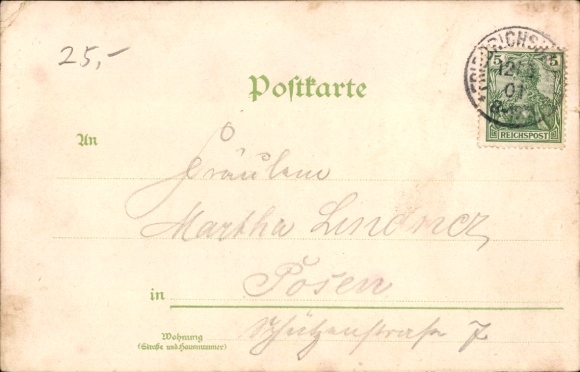 25,-
Postkarte
5 5
REICHSPOST
12
01
An
Fräulein
Martha Lindner
in Posen
Wohnung
(Straße und Hausnummer)
Schützenstraße 7